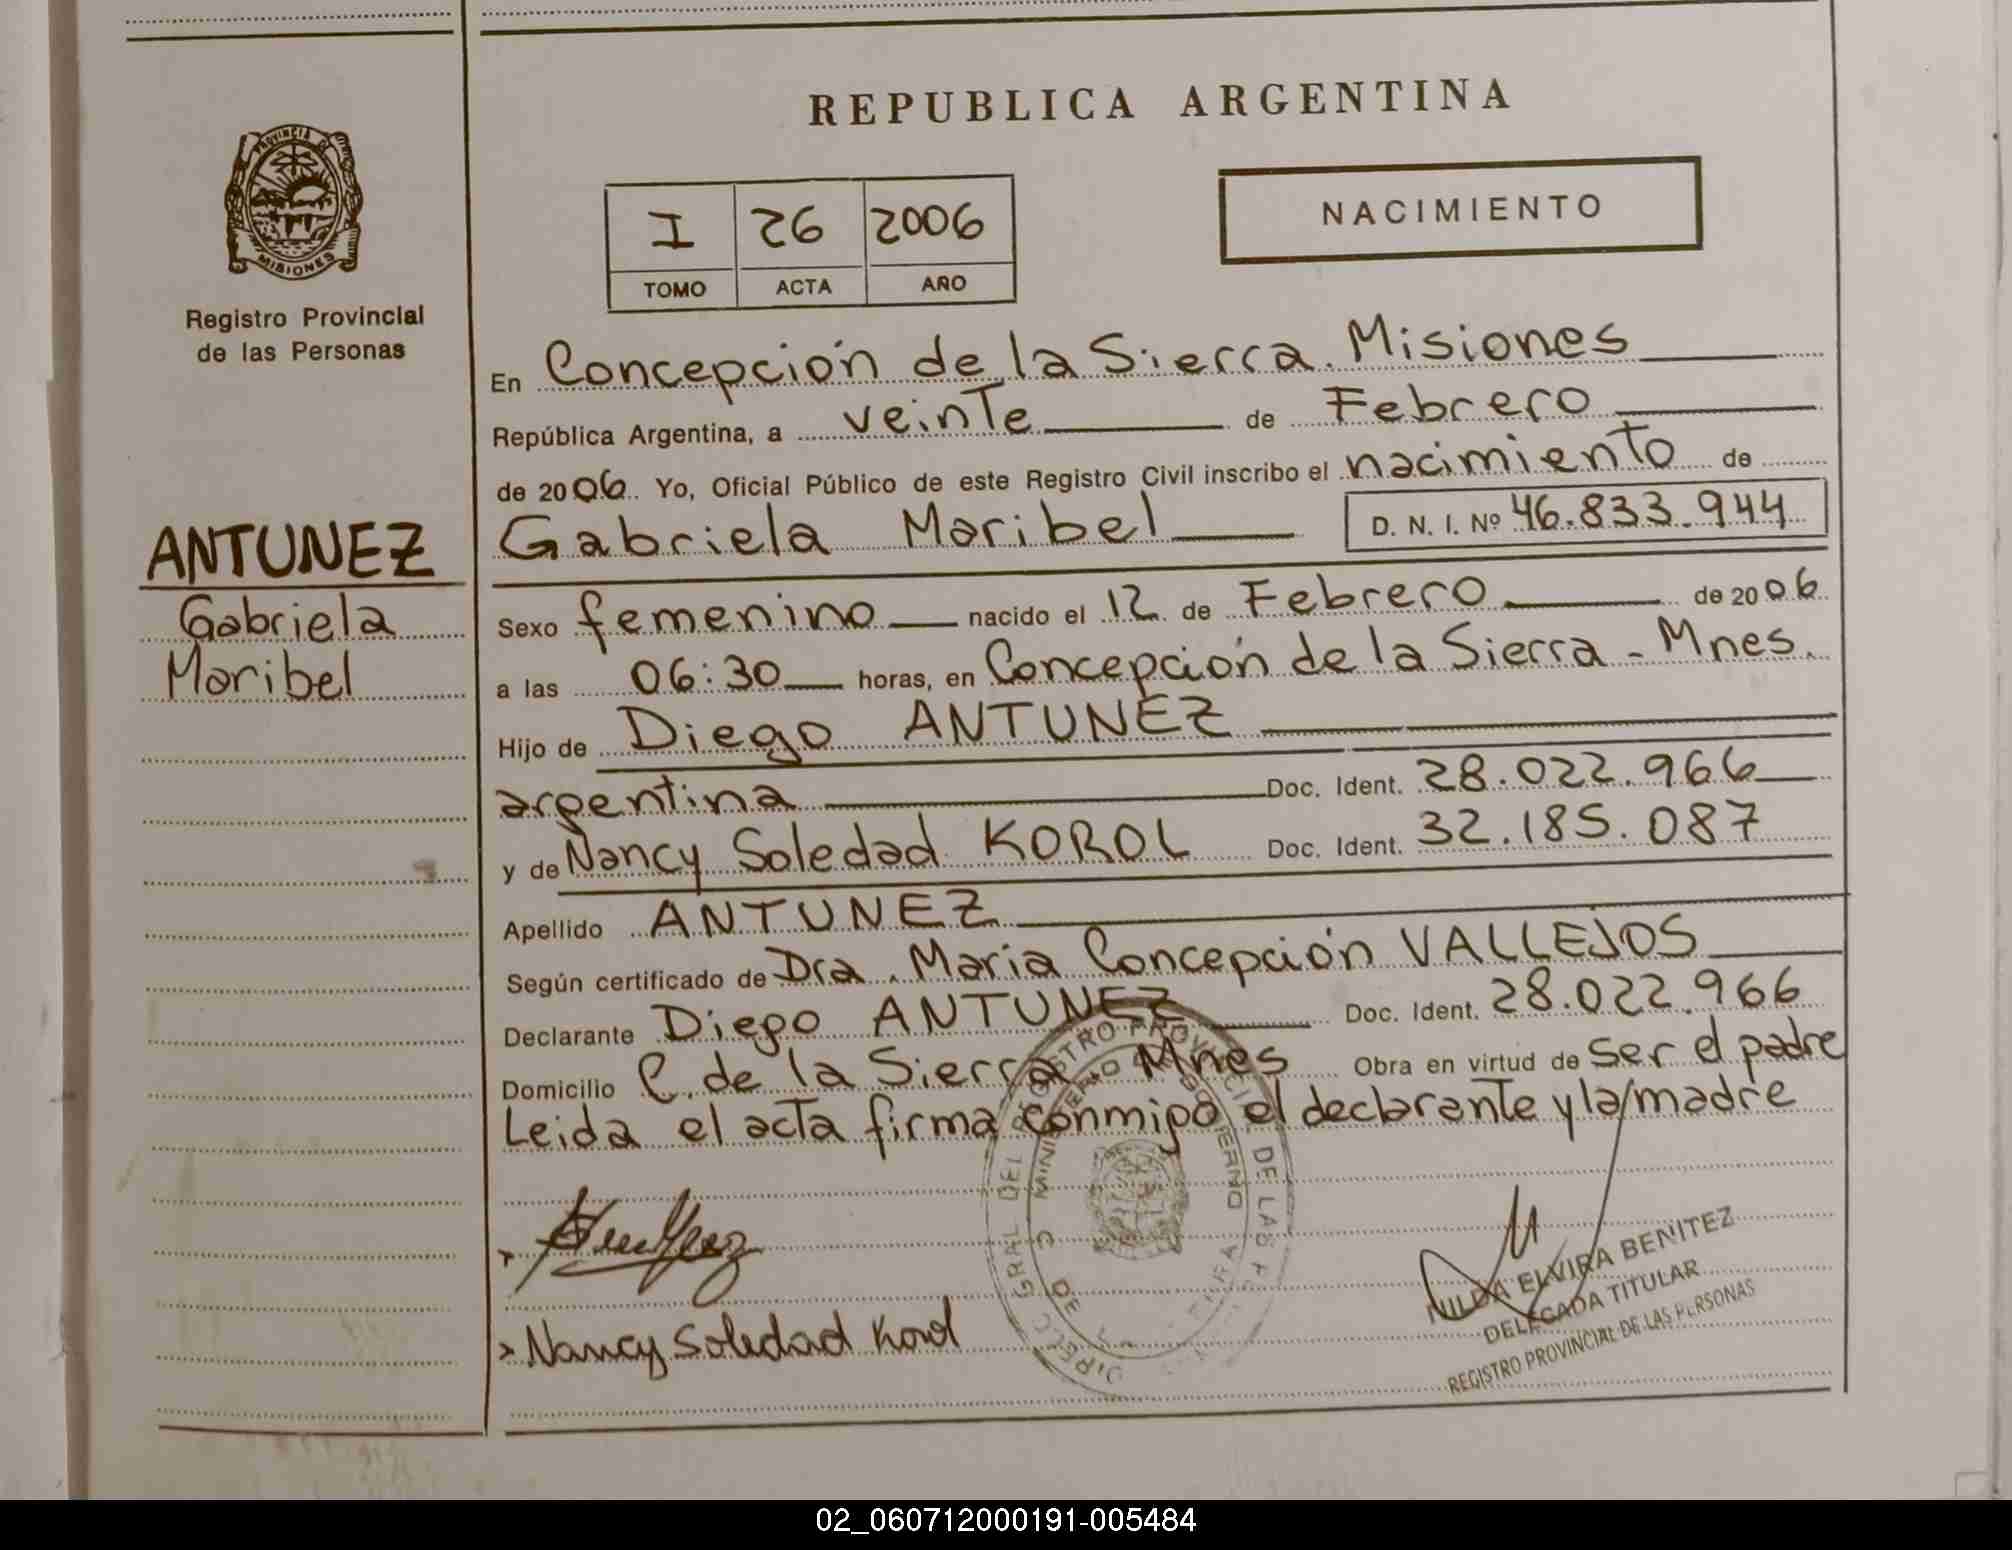 REPUBLICA ARGENTINA
PROVINCIA DE
MISIONES
Registro Provincial
de las Personas
I 26 2006
TOMO ACTA AÑO
NACIMIENTO
En Concepción de la Sierra. Misiones
República Argentina, a veinte de Febrero
de 2006. Yo, Oficial Público de este Registro Civil inscribo el nacimiento de
Gabriela Maribel D. N. I. Nº 46.833.944
ANTUNEZ
Gabriela
Maribel
Sexo femenino nacido el 12 de Febrero de 2006
a las 06:30 horas, en Concepción de la Sierra - Mnes.
Hijo de Diego ANTUNEZ
argentina Doc. Ident. 28.022.966
y de Nancy Soledad KOROL Doc. Ident. 32.185.087
Apellido ANTUNEZ
Según certificado de Dra. Maria Concepción VALLEJOS
Declarante Diego ANTUNEZ Doc. Ident. 28.022.966
Domicilio C. de la Sierra Mnes Obra en virtud de ser el padre
Leida el acta firma conmigo el declarante y la/madre
Nancy Soledad Korol
NILDA ELVIRA BENITEZ
DELEGADA TITULAR
REGISTRO PROVINCIAL DE LAS PERSONAS
02_060712000191-005484